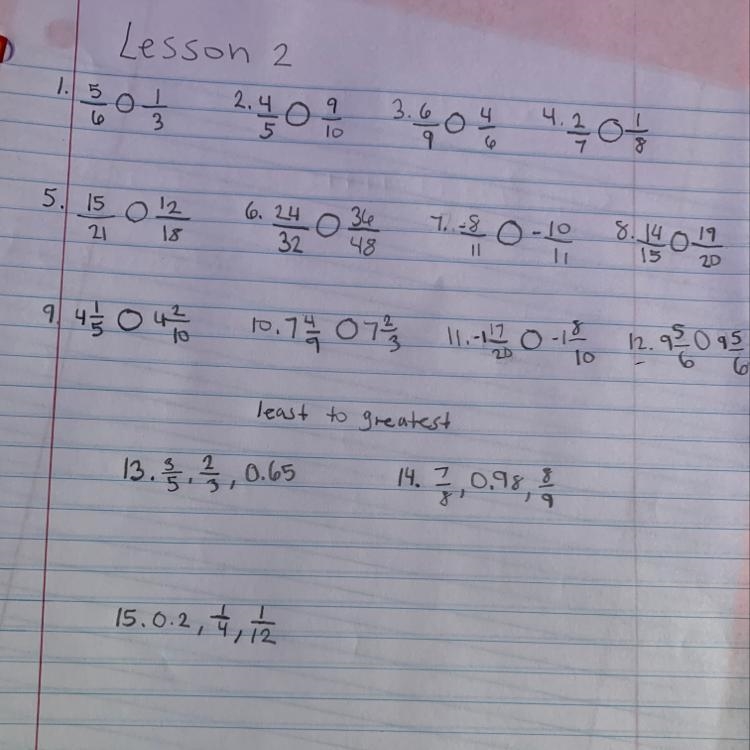 Lesson 2
1. 5/6 ○ 1/3 2. 4/5 ○ 9/10 3. 6/9 ○ 4/6 4. 2/7 ○ 1/8
5. 15/21 ○ 12/18 6. 24/32 ○ 36/48 7. -8/11 ○ -10/11 8. 14/15 ○ 19/20
9. 4 1/5 ○ 4 2/10 10. 7 4/9 ○ 7 2/3 11. -1 17/20 ○ -1 8/10 12. 9 5/6 ○ 9 5/6
least to greatest
13. 3/5, 2/3, 0.65 14. 7/8, 0.98, 8/9
15. 0.2, 1/4, 1/12